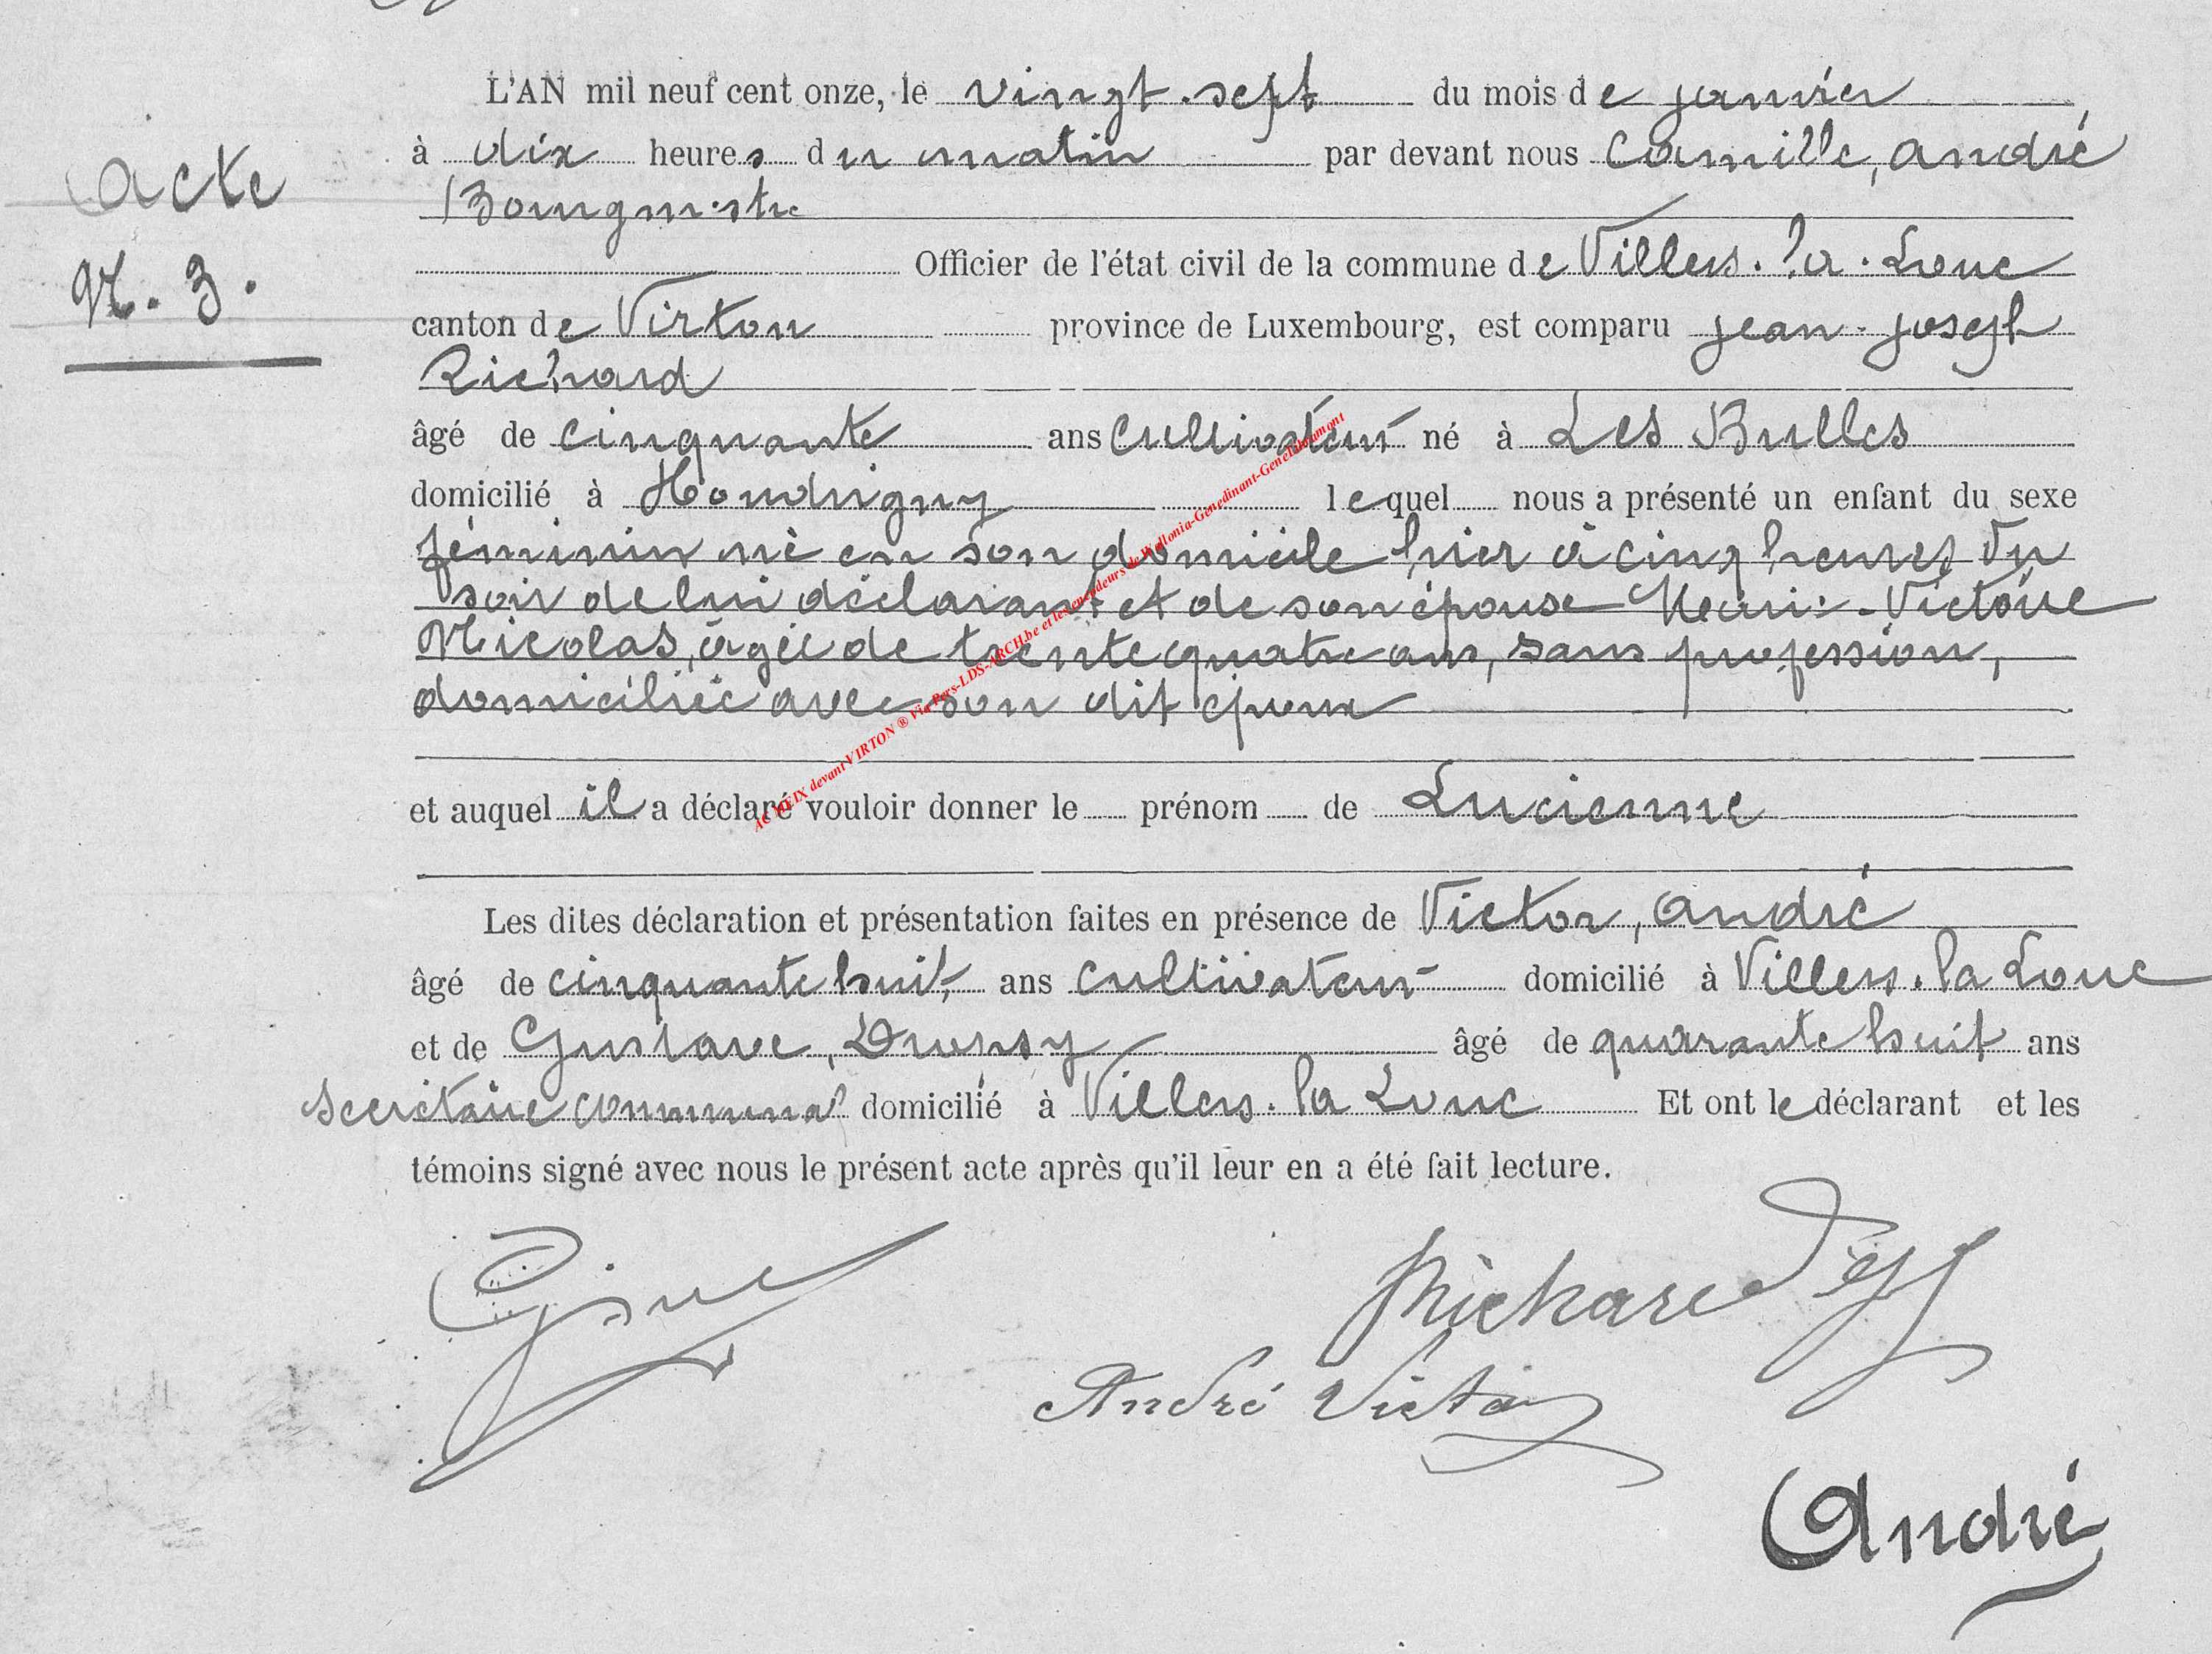 L'AN mil neuf cent onze, le vingt-sept du mois de janvier
à dix heures du matin par devant nous Camille, André
Bourgmestre
Officier de l'état civil de la commune de Villers-la-Loue
canton de Virton province de Luxembourg, est comparu Jean-Joseph
Richard
âgé de cinquante ans cultivateur né à Les Bulles
domicilié à Houdrigny lequel nous a présenté un enfant du sexe
féminin né en son domicile hier à cinq heures du
soir de lui déclarant et de son épouse Marie-Victoire
Nicolas, âgée de trente quatre ans, sans profession,
domiciliée avec son dit époux
et auquel il a déclaré vouloir donner le prénom de Lucienne
Les dites déclaration et présentation faites en présence de Victor, André
âgé de cinquante huit ans cultivateur domicilié à Villers-la Loue
et de Gustave, âgé de quarante huit ans
secrétaire communal domicilié à Villers-la Loue Et ont le déclarant et les
témoins signé avec nous le présent acte après qu'il leur en a été fait lecture.
acte
N. 3.
AC MEIX devant VIRTON ® Via Pers-LDS-ARCH.be et les encodeurs de Wallonia-Genedinant-Genelibramont
Richard
André Victor
André